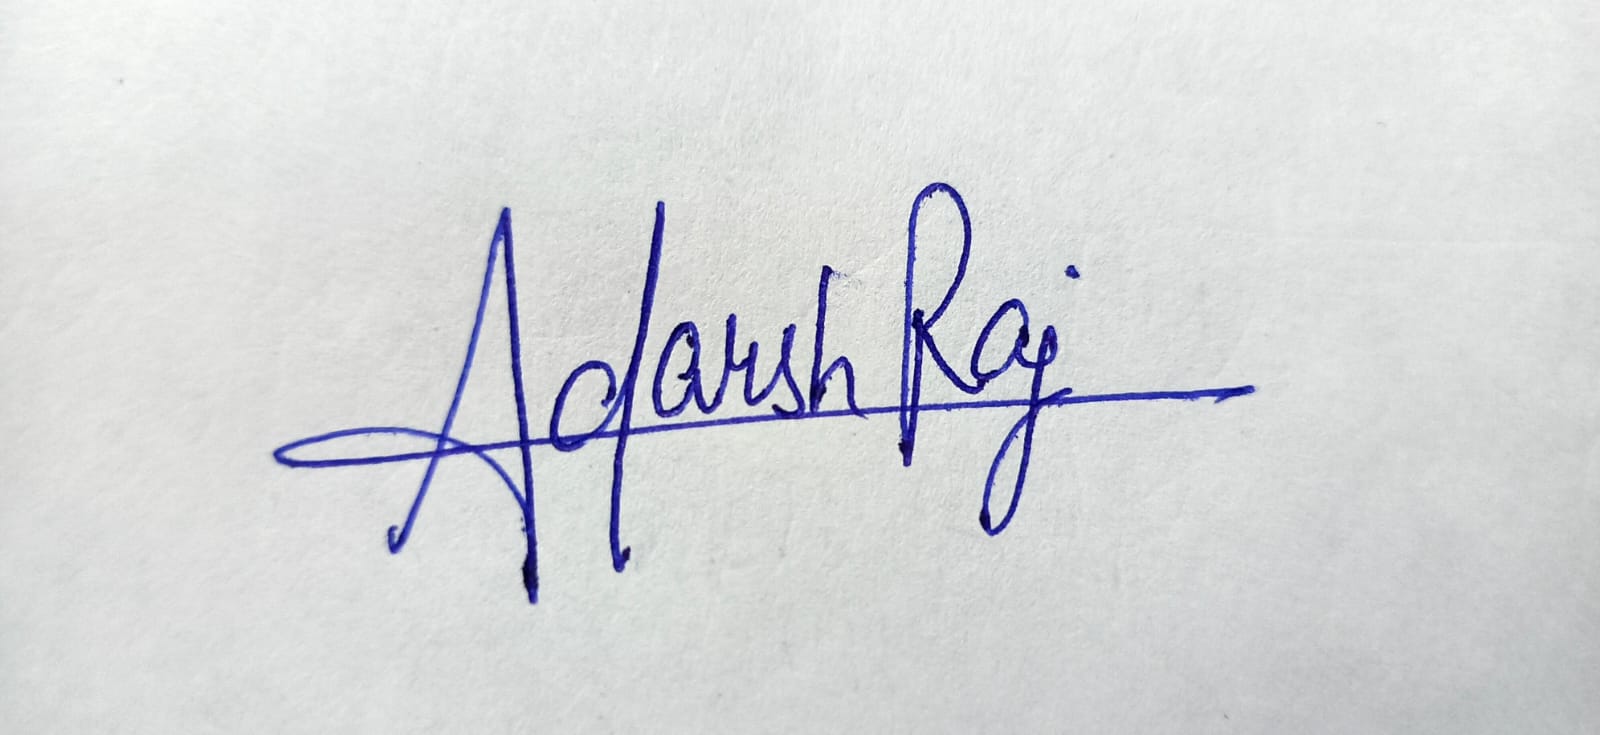 Adarsh Raj